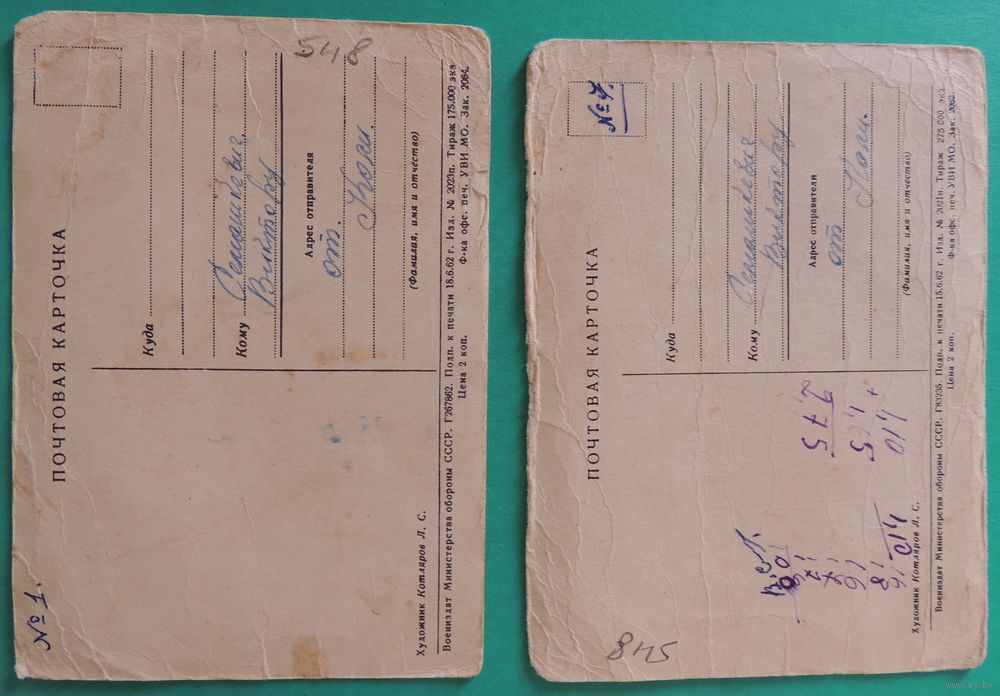 № 1.
ПОЧТОВАЯ КАРТОЧКА
548
Куда
Кому
Виктору
Адрес отправителя
от.
Коли.
(Фамилия, имя и отчество)
Художник Котляров Л. С.
Воениздат Министерства обороны СССР. Г267862. Подп. к печати 18.6.62 г. Изд. № 2023п. Тираж 175.000 экз.
Цена 2 коп. Ф-ка офс. печ. УВИ МО. Зак. 2064.
№ 7.
ПОЧТОВАЯ КАРТОЧКА
Куда
Кому
Виктору
Адрес отправителя
от
Коли.
(Фамилия, имя и отчество)
2,75
1,65
+
1,10
845
Художник Котляров Л. С.
Воениздат Министерства обороны СССР. Г83235. Подп. к печати 15.6.62 г. Изд. № 2021п. Тираж 275.000 экз.
Цена 2 коп. Ф-ка офс. печ. УВИ МО. Зак. 2062.
www.ay.by